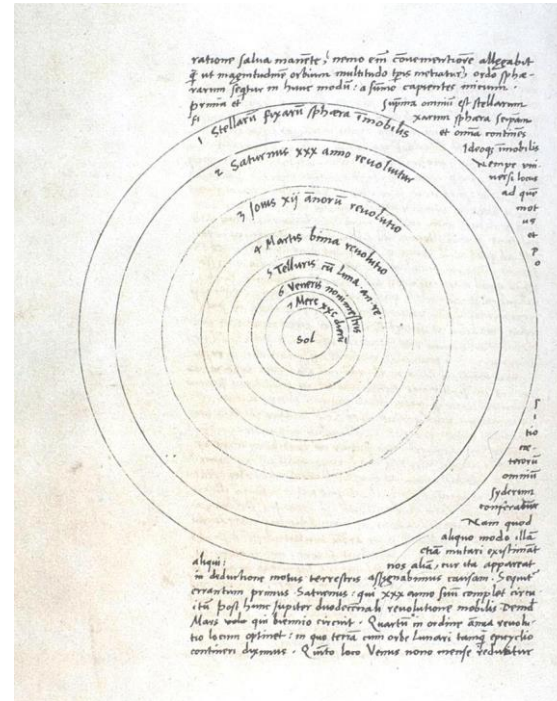 ratione salua manēte, nemo em̄ cōuenientiorē allegabit
q̄ ut magnitudinē orbium multitudo tp̄is metiatur, ordo sphæ-
rarum seq̄tur in hunc modū: a sūmo capientes initium.
prima et suprema omniū est stellarum
fixarum sphæra seip̄am
et omīa continēs
Ideoq; īmobilis
Nempe vni-
uersi locus
ad quē
mot
us
et
p
o
1 Stellarū fixarū sphæra īmobilis
2 Saturnus xxx anno reuoluitur
3 Iouis xij annorū reuolutio
4 Martis bima reuolutio
5 Telluris cū luna an. re.
6 Veneris nonimestris
7 Merc xxc dierū
Sol
s
i
tio
cæ-
terorū
omniū
syderum
conferatur
Nam quod
aliquo modo illā
etiā mutari existimāt
aliqui: nos aliā, cur ita appareat
in deductione motus terrestris assignabimus causam. Sequit'
errantium primus Saturnus: qui xxx anno suū complet circu
itū Post hunc Iupiter duodecennali reuolutione mobilis Deīnd
Mars qui biennio circuit. Quartū in ordine annua reuolu-
tio locum optinet: in quo terrā cum orbe lunari tanq̄ epicyclio
contineri diximus. Quinto loco Venus nono mense reducitur